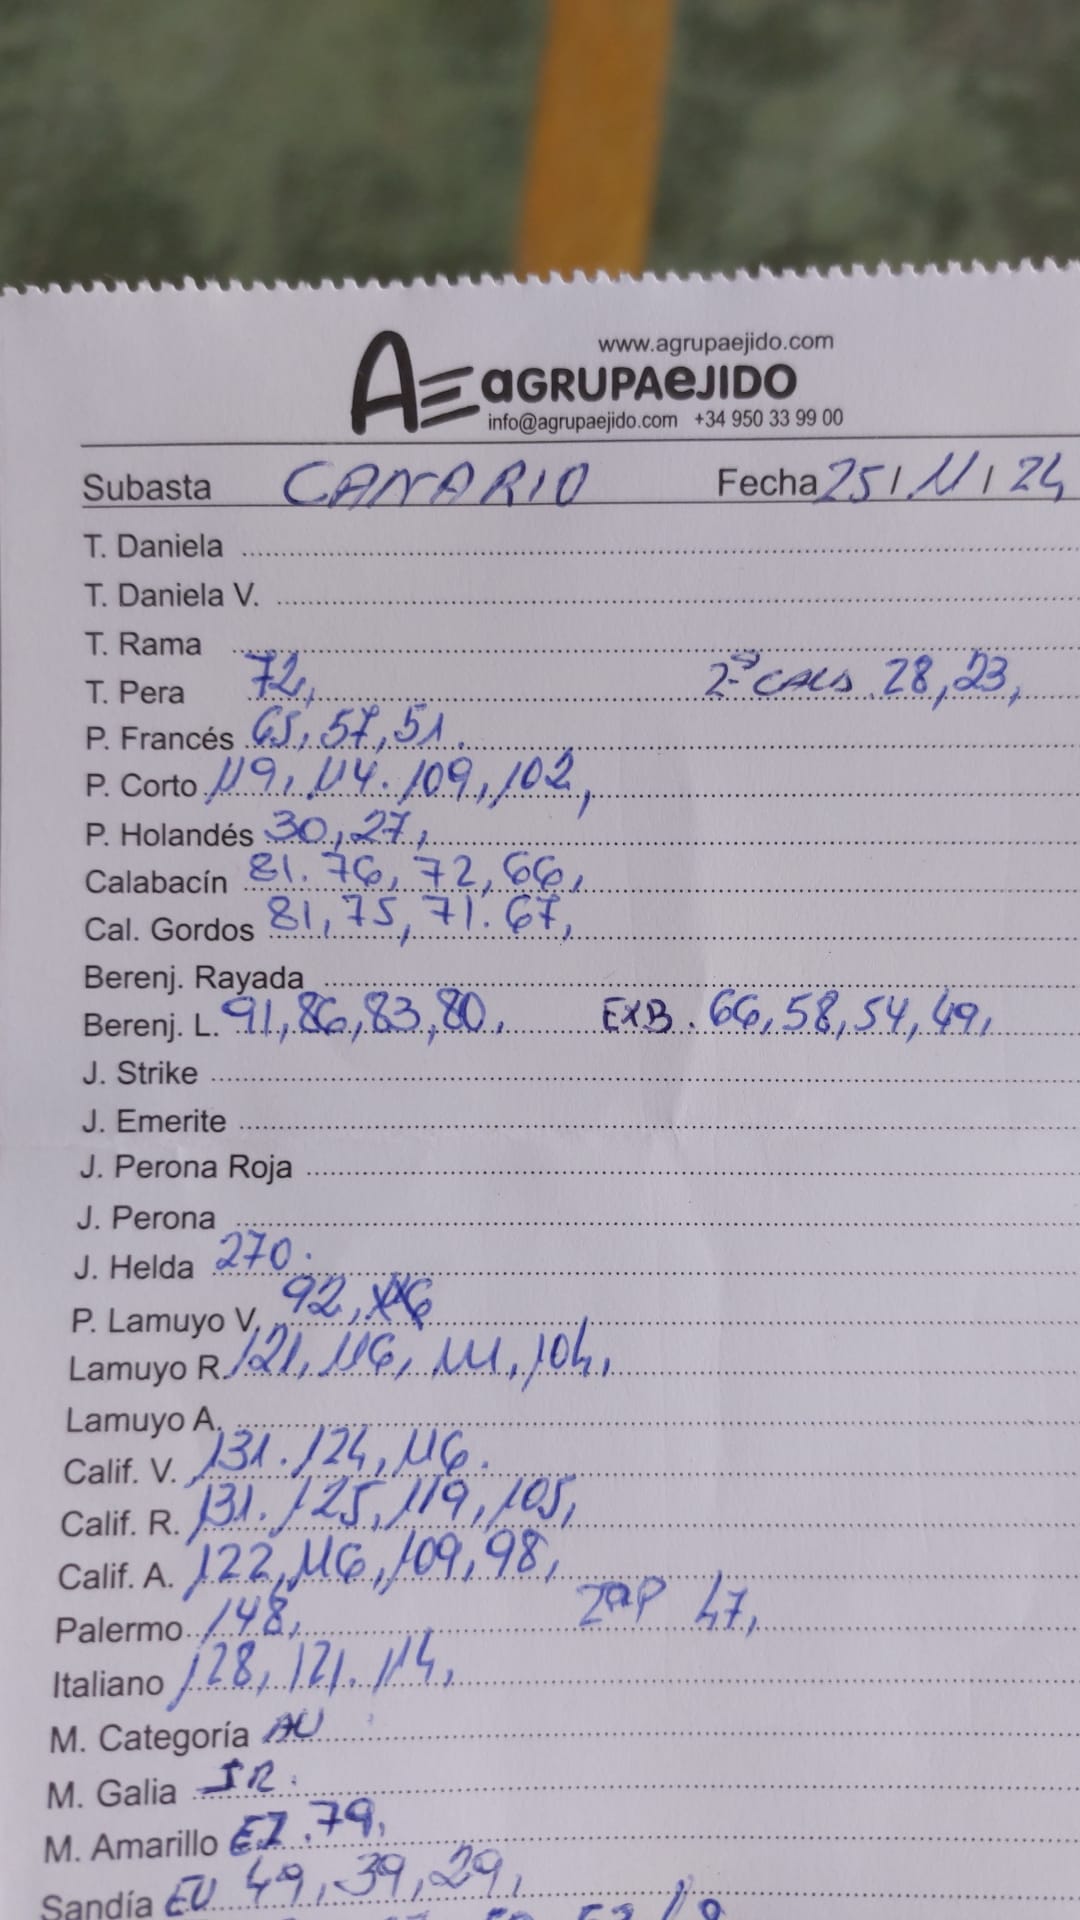 www.agrupaejido.com
AE aGRUPAeJIDO
info@agrupaejido.com +34 950 33 99 00
Subasta CANARIO Fecha 25/11/24
T. Daniela
T. Daniela V.
T. Rama
T. Pera 72, 2ª CALS. 28, 23,
P. Francés 65, 57, 51.
P. Corto 119, 114. 109, 102,
P. Holandés 30, 27,
Calabacín 81. 76, 72, 66,
Cal. Gordos 81, 75, 71. 67,
Berenj. Rayada
Berenj. L. 91, 86, 83, 80, EXB. 66, 58, 54, 49,
J. Strike
J. Emerite
J. Perona Roja
J. Perona
J. Helda 270.
P. Lamuyo V. 92,
Lamuyo R. 121, 116, 111, 104,
Lamuyo A.
Calif. V. 131. 124, 116.
Calif. R. 131. 125, 119, 105,
Calif. A. 122, 116, 109, 98,
Palermo 148, ZAP 47,
Italiano 128, 121. 114,
M. Categoría AU
M. Galia SR.
M. Amarillo EZ. 79,
Sandía EU 49, 39, 29,